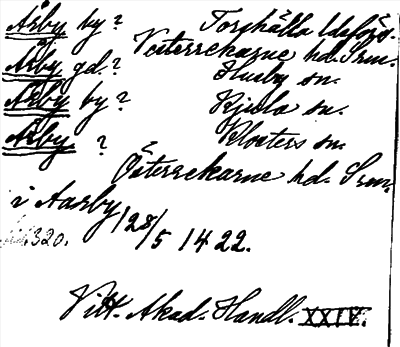 Åsby by? Torshälla ldsförs.
Västerrekarne hd. Srm.
Åsby gd.? Husby sn.
Åsby by? Kjula sn.
Åsby ? Klosters sn.
Österrekarne hd. Srm.
i Aasby 128/5 1422.
320.
Vitt. Akad. Handl. XXIV.